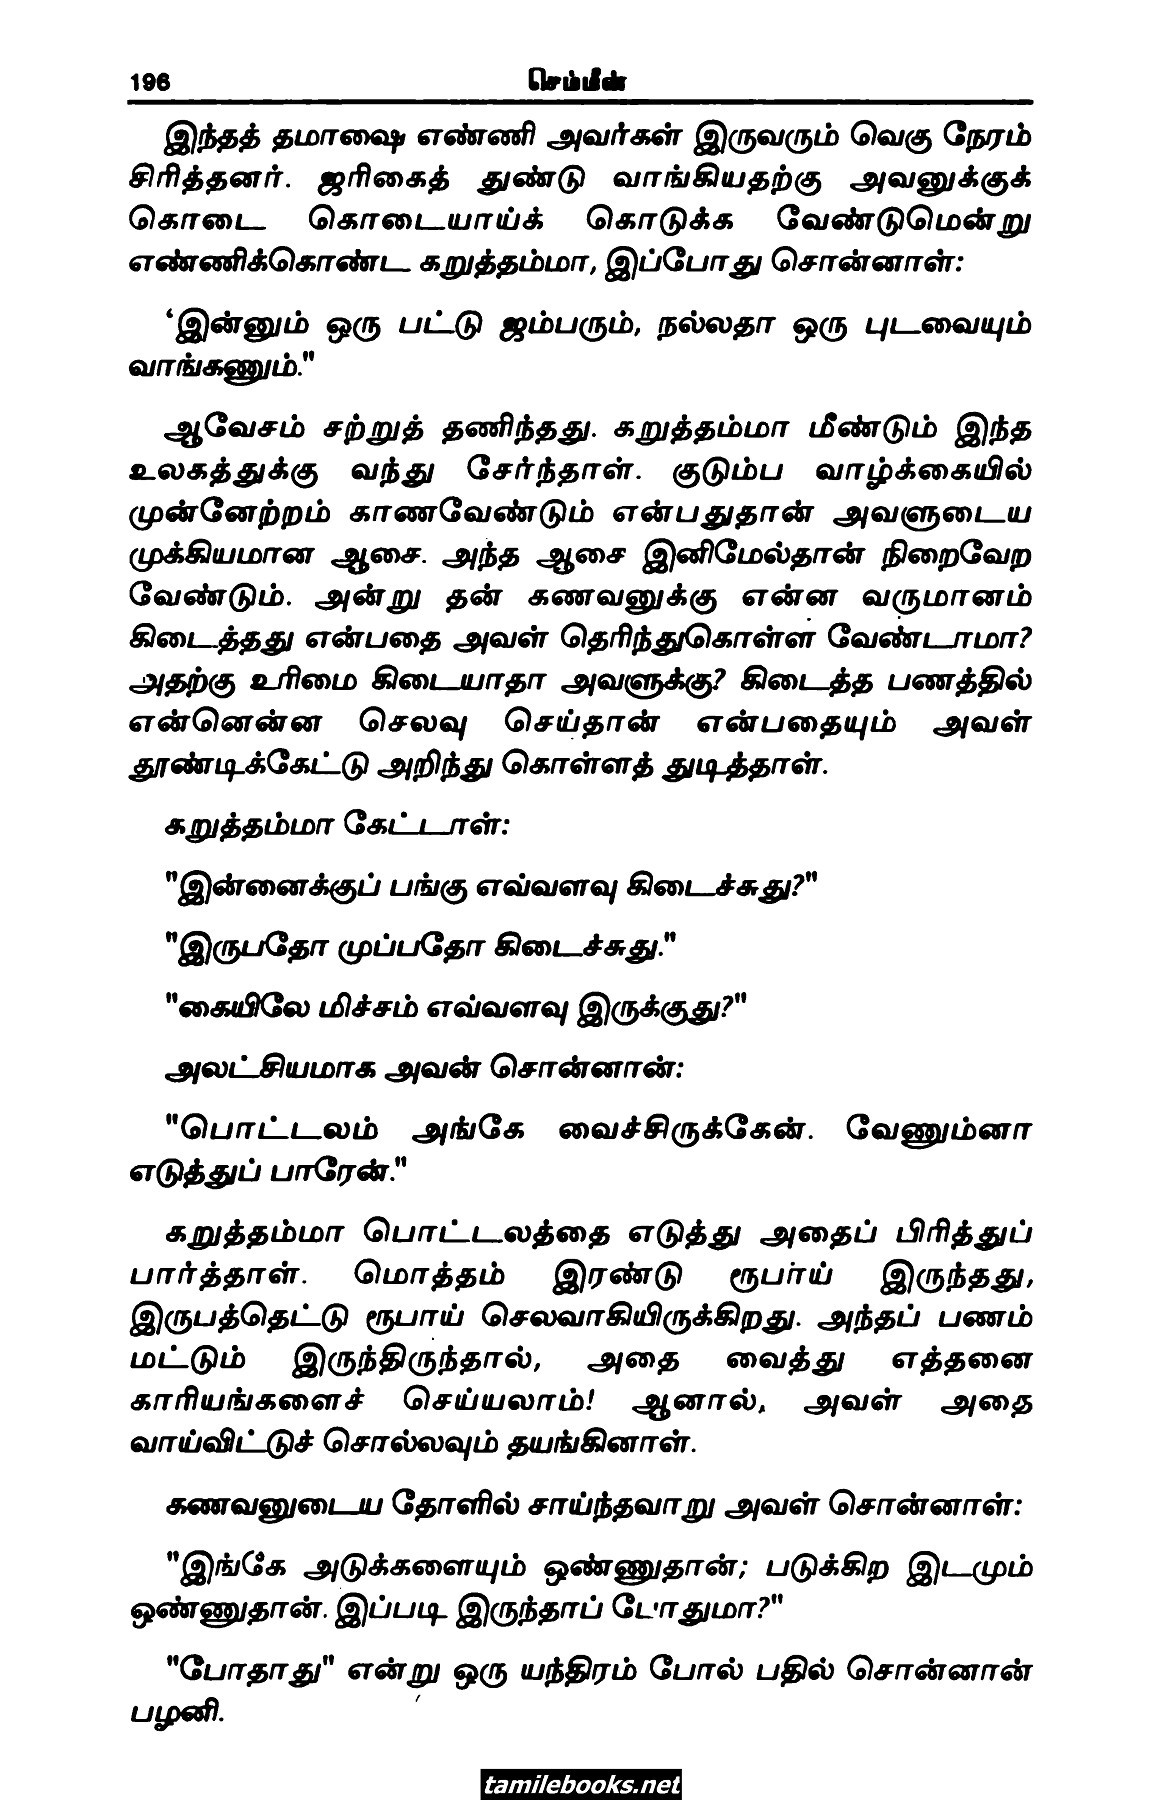 196 செம்மீன்
இந்தத் தமாஷை எண்ணி அவர்கள் இருவரும் வெகு நேரம்
சிரித்தனர். ஜரிகைத் துண்டு வாங்கியதற்கு அவனுக்குக்
கொடை கொடையாய்க் கொடுக்க வேண்டுமென்று
எண்ணிக்கொண்ட கறுத்தம்மா, இப்போது சொன்னாள்:
‘இன்னும் ஒரு பட்டு ஜம்பரும், நல்லதா ஒரு புடவையும்
வாங்கணும்."
ஆவேசம் சற்றுத் தணிந்தது. கறுத்தம்மா மீண்டும் இந்த
உலகத்துக்கு வந்து சேர்ந்தாள். குடும்ப வாழ்க்கையில்
முன்னேற்றம் காணவேண்டும் என்பதுதான் அவளுடைய
முக்கியமான ஆசை. அந்த ஆசை இனிமேல்தான் நிறைவேற
வேண்டும். அன்று தன் கணவனுக்கு என்ன வருமானம்
கிடைத்தது என்பதை அவள் தெரிந்துகொள்ள வேண்டாமா?
அதற்கு உரிமை கிடையாதா அவளுக்கு? கிடைத்த பணத்தில்
என்னென்ன செலவு செய்தான் என்பதையும் அவள்
தூண்டிக்கேட்டு அறிந்து கொள்ளத் துடித்தாள்.
கறுத்தம்மா கேட்டாள்:
"இன்னைக்குப் பங்கு எவ்வளவு கிடைச்சுது?"
"இருபதோ முப்பதோ கிடைச்சுது."
"கையிலே மிச்சம் எவ்வளவு இருக்குது?"
அலட்சியமாக அவன் சொன்னான்:
"பொட்டலம் அங்கே வைச்சிருக்கேன். வேணும்னா
எடுத்துப் பாரேன்."
கறுத்தம்மா பொட்டலத்தை எடுத்து அதைப் பிரித்துப்
பார்த்தாள். மொத்தம் இரண்டு ரூபாய் இருந்தது,
இருபத்தெட்டு ரூபாய் செலவாகியிருக்கிறது. அந்தப் பணம்
மட்டும் இருந்திருந்தால், அதை வைத்து எத்தனை
காரியங்களைச் செய்யலாம்! ஆனால், அவள் அதை
வாய்விட்டுச் சொல்லவும் தயங்கினாள்.
கணவனுடைய தோளில் சாய்ந்தவாறு அவள் சொன்னாள்:
"இங்கே அடுக்களையும் ஒண்ணுதான்; படுக்கிற இடமும்
ஒண்ணுதான். இப்படி இருந்தாப் போதுமா?"
"போதாது" என்று ஒரு யந்திரம் போல் பதில் சொன்னான்
பழனி.
tamilebooks.net